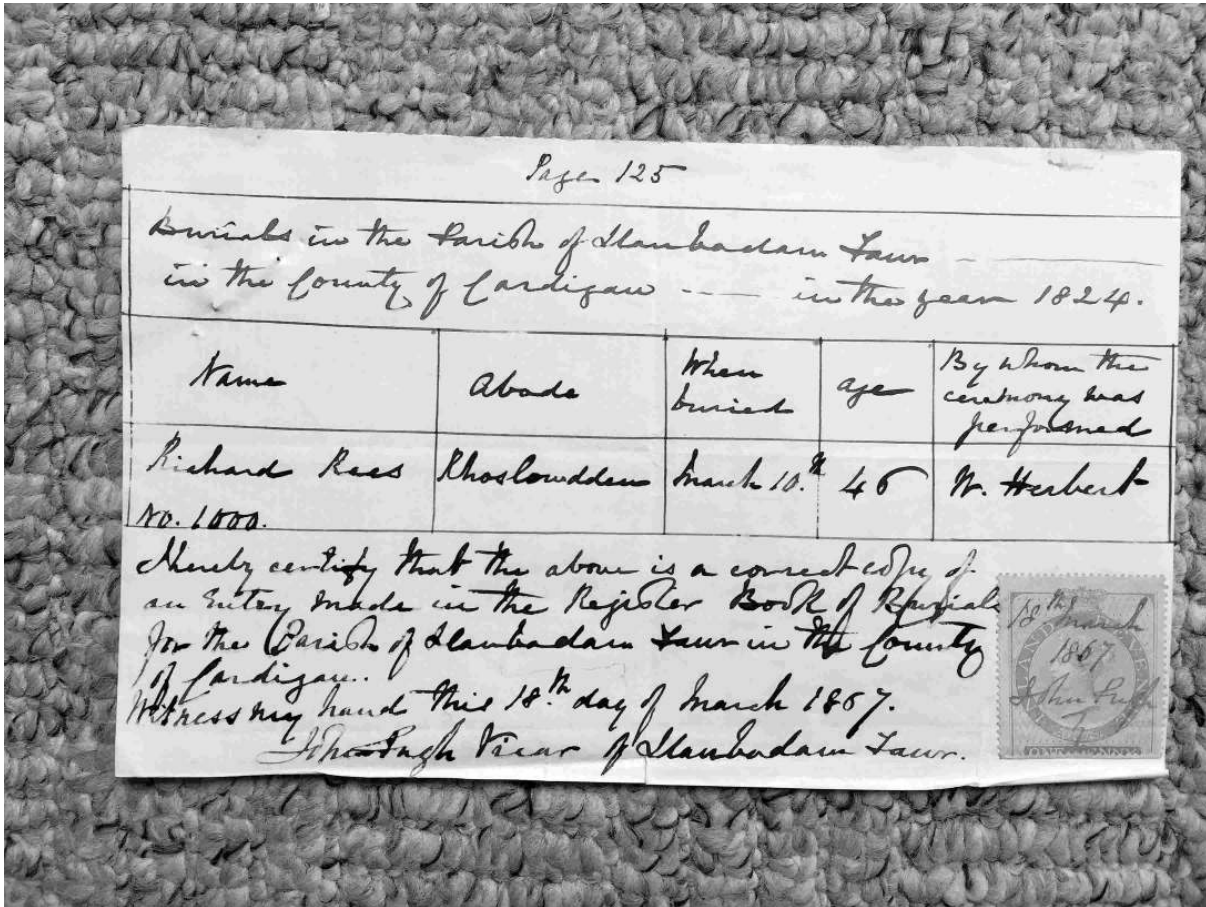 Page 125
Burials in the Parish of Llanbadarn Fawr
in the County of Cardigan --- in the year 1824.
Name
Abode
When
buried
age
By whom the
ceremony was
performed
Richard Rees
No. 1000.
Rhoslowdden
March 10.th
46
W. Herbert
I hereby certify that the above is a correct copy of
an Entry made in the Register Book of Burials
for the Parish of Llanbadarn Fawr in the County
of Cardigan..
Witness my hand this 18.th day of March 1867.
John Pugh Vicar of Llanbadarn Fawr.
18th March
1867
John Pugh